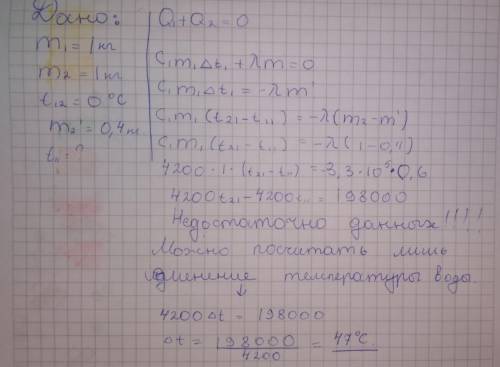 Дано:
m₁ = 1 кг
m₂ = 1 кг
t₁₂ = 0 °C
m₂' = 0,4 кг
t₁₁ = ?
Q₁ + Q₂ = 0
C₁m₁Δt₁ + λm = 0
C₁m₁Δt₁ = -λm'
C₁m₁(t₂₁ - t₁₁) = -λ(m₂ - m')
C₁m₁(t₂₁ - t₁₁) = -λ(1 - 0,4)
4200 · 1 · (t₂₁ - t₁₁) = -3,3 · 10⁵ · 0,6
4200t₂₁ - 4200t₁₁ = 198000
Недостаточно данных!!!!
Можно посчитать лишь
изменение температуры воды
↓
4200Δt = 198000
Δt = 198000/4200 = 47°C.